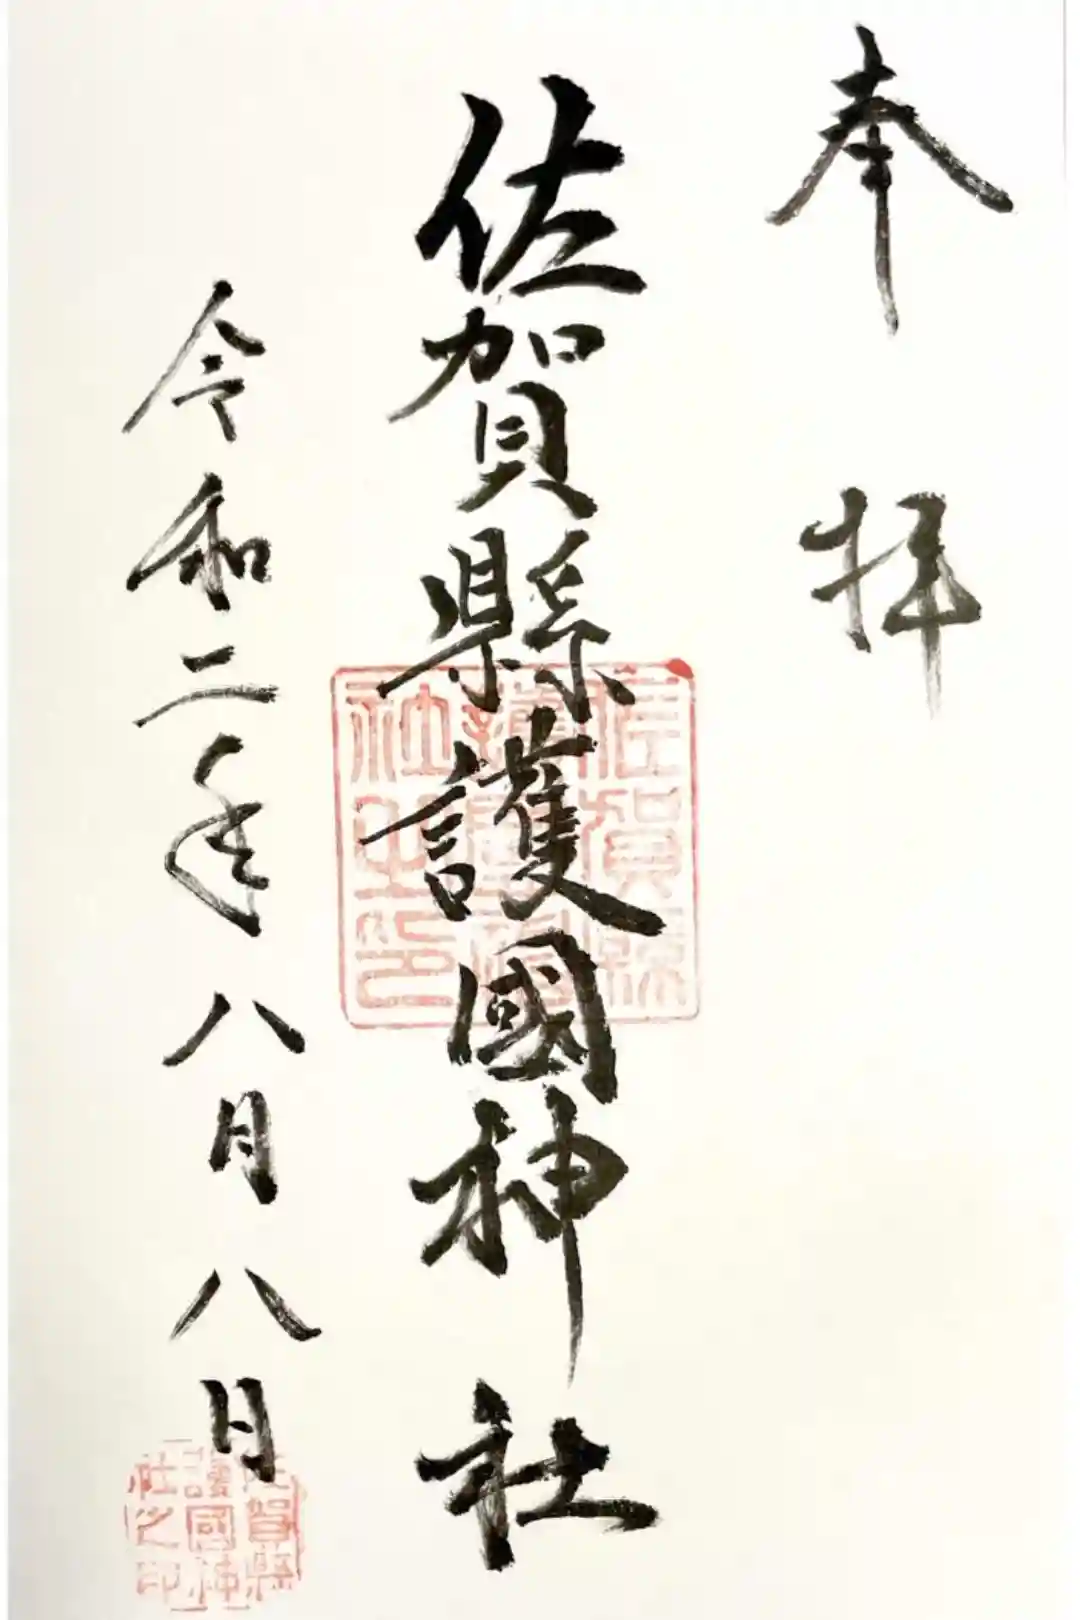 奉拝
佐賀縣護國神社
佐賀縣
護國神
社之印
令和二年八月八日
佐賀縣
護國神
社之印